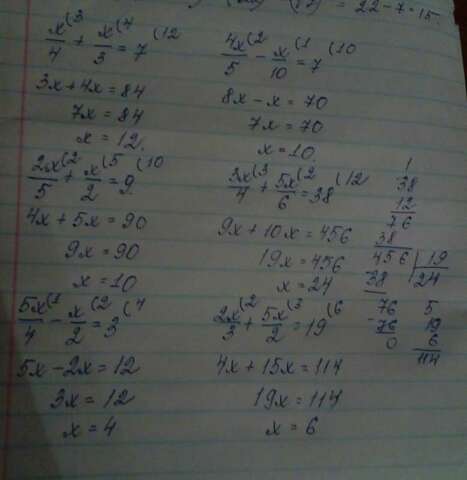 = 22-7·15
x/4(3 + x/3(4 = 7(12
3x+4x=84
7x=84
x=12.
4x/5(2 - x/10(1 = 7(10
8x-x=70
7x=70
x=10.
2x/5(2 + x/2(5 = 9(10
4x+5x=90
9x=90
x=10
3x/4(3 + 5x/6(2 = 38(12
9x+10x=456
19x=456
x=24
1
38
12
76
38
456 | 19
38 24
76
-76
0
5
19
6
114
5x/4(1 - x/2(2 = 3(4
5x-2x=12
3x=12
x=4
2x/3(2 + 5x/2(3 = 19(6
4x+15x=114
19x=114
x=6